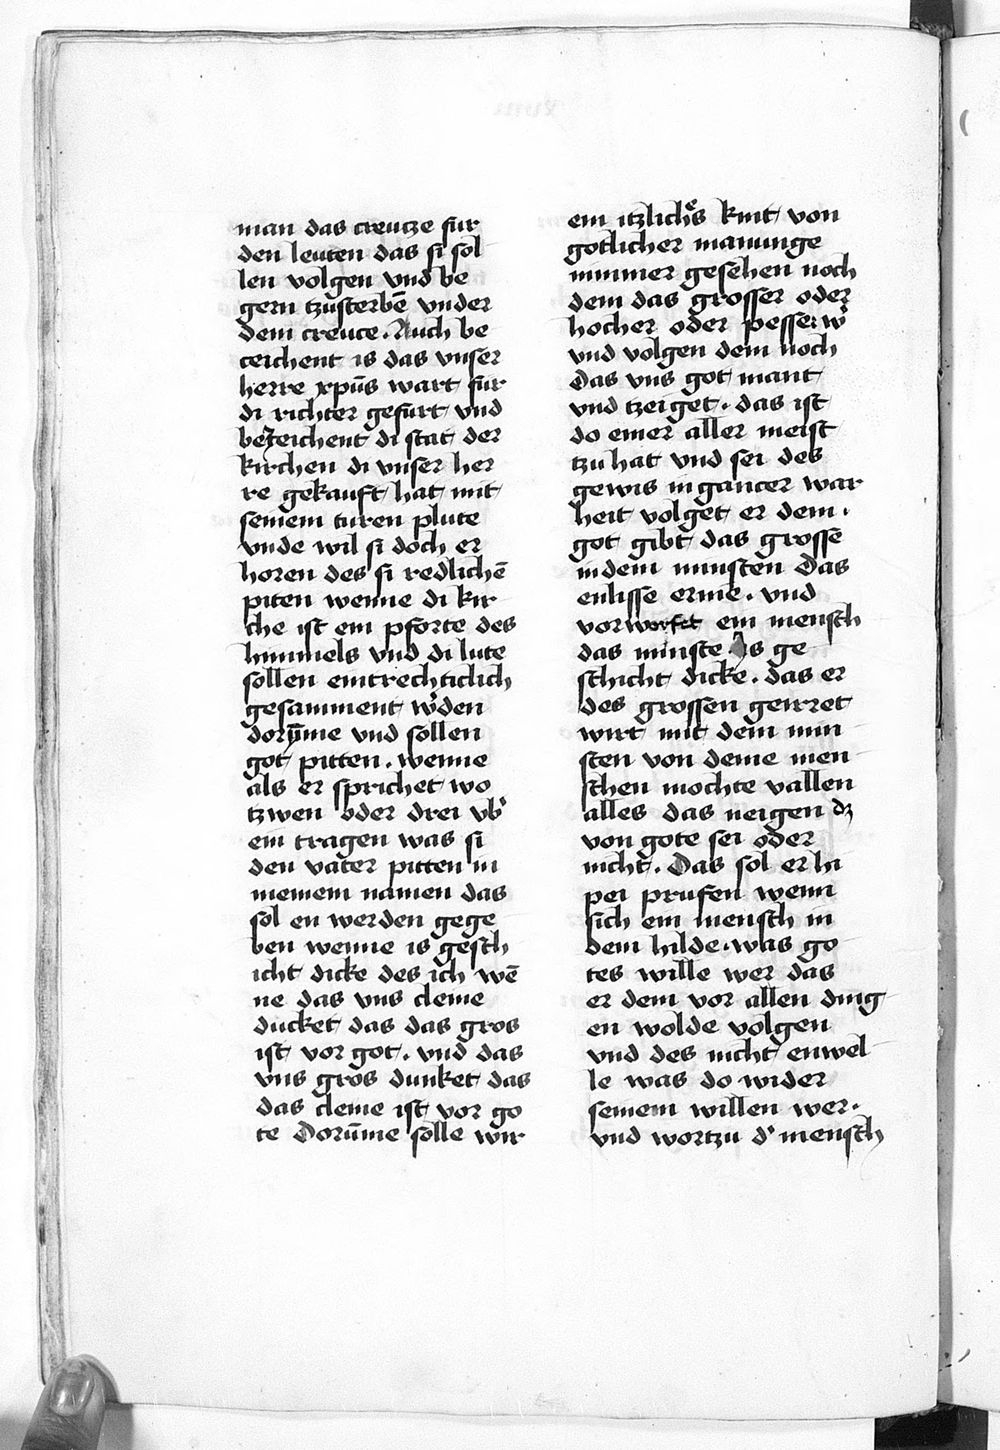 man das creutze fur
den leuten das si sol
len volgen vnd be
gern tzusterbē vnder
dem creuce. Auch be
ceichent is das vnser
herre xpūs wart fur
di richter gefurt vnd
bezeichent di stat der
kirchen di vnser her
re gekauft hat mit
seinem turen plute
vnde wil si doch er
horen des si redlichē
piten wenne di kir
che ist ein pforte des
himmels vnd di lute
sollen eintrechticlich
gesamment w'den
dorv̄me vnd sollen
got pitten. wenne
als er sprichet wo
tzwen oder drei vb'
ein tragen was si
den vater pitten in
meinem namen das
sol en werden gege
ben wenne is gesch
icht dicke des ich wē
ne das vns cleine
ducket das das gros
ist vor got. vnd das
vns gros dunket das
das cleine ist vor go
te Dorūme solle wir
ein itzlichs kint von
gotlicher manunge
nimmer gesehen noch
dem das grosser oder
hocher oder pesser w'
vnd volgen dem noch
Das vns got mant
vnd tzeiget. das ist
do einer aller meist
tzu hat vnd sei des
gewis in gancer war
heit volget er dem.
got gibt das grosse
in dem minsten Das
enlisse er nie. vnd
vorworfet ein mensch
das minste is ge
schicht dicke. das er
des grossen geirret
wirt mit dem min
sten von deme men
schen mochte vallen
alles das neigen dz
von gote sei oder
nicht. Das sol er hi
pei prufen wenn
sich ein mensch in
dem hilde. was go
tes wille wer das
er dem vor allen ding
en wolde volgen
vnd des nicht enwel
le was do wider
seinem willen wer.
vnd wortzu d' mensch